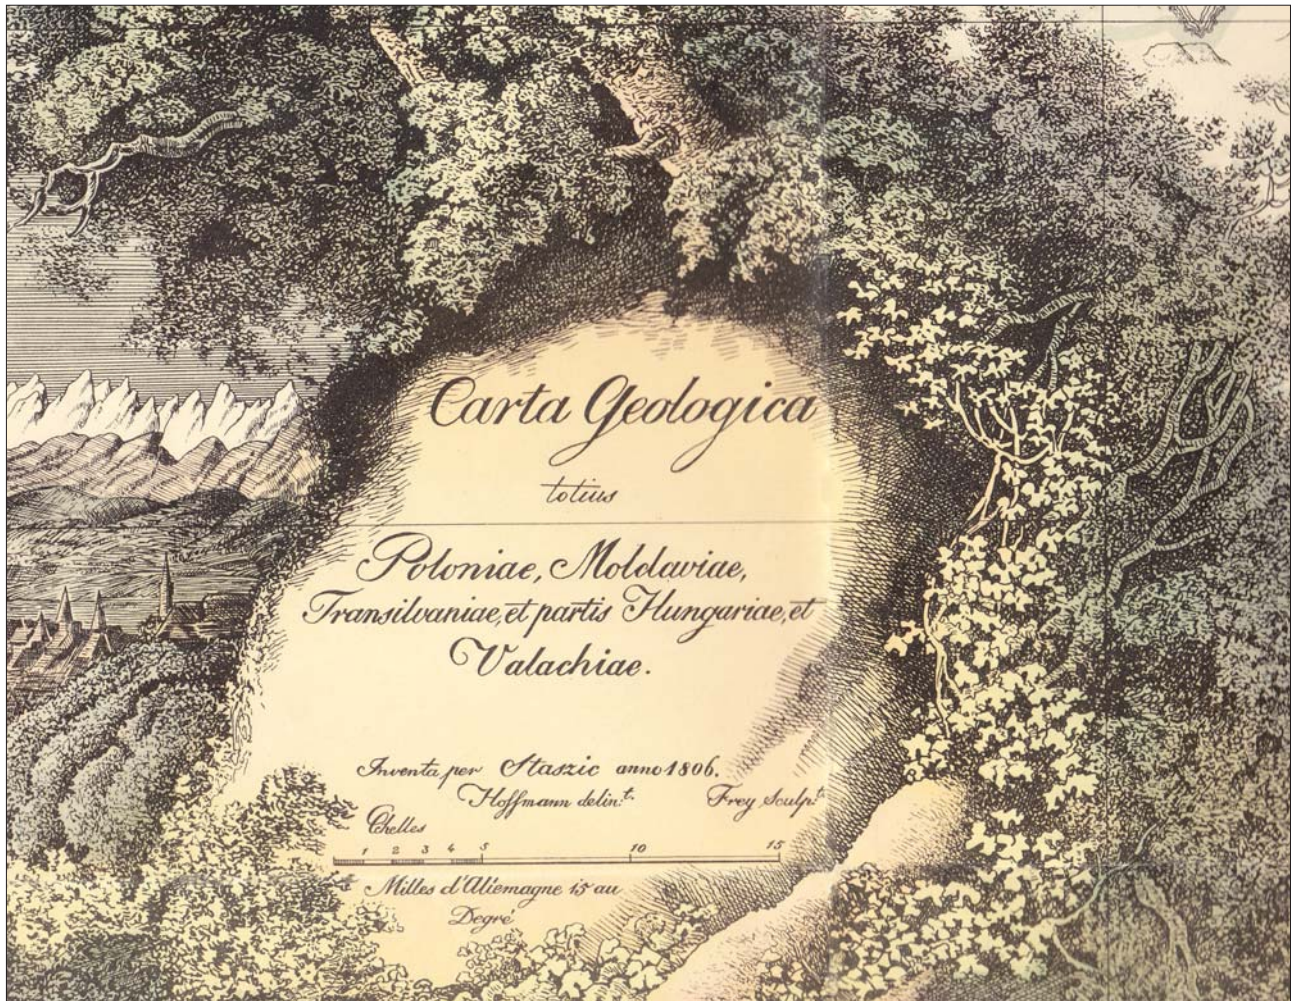 Carta Geologica
totius
Poloniae, Moldaviae,
Transilvaniae, et partis Hungariae, et
Valachiae.
Inventa per Staszic anno 1806.
Hoffmann delin.t. Frey Sculp.t
Echelles
1 2 3 4 5 10 15
Milles d'Allemagne 15 au
Degré